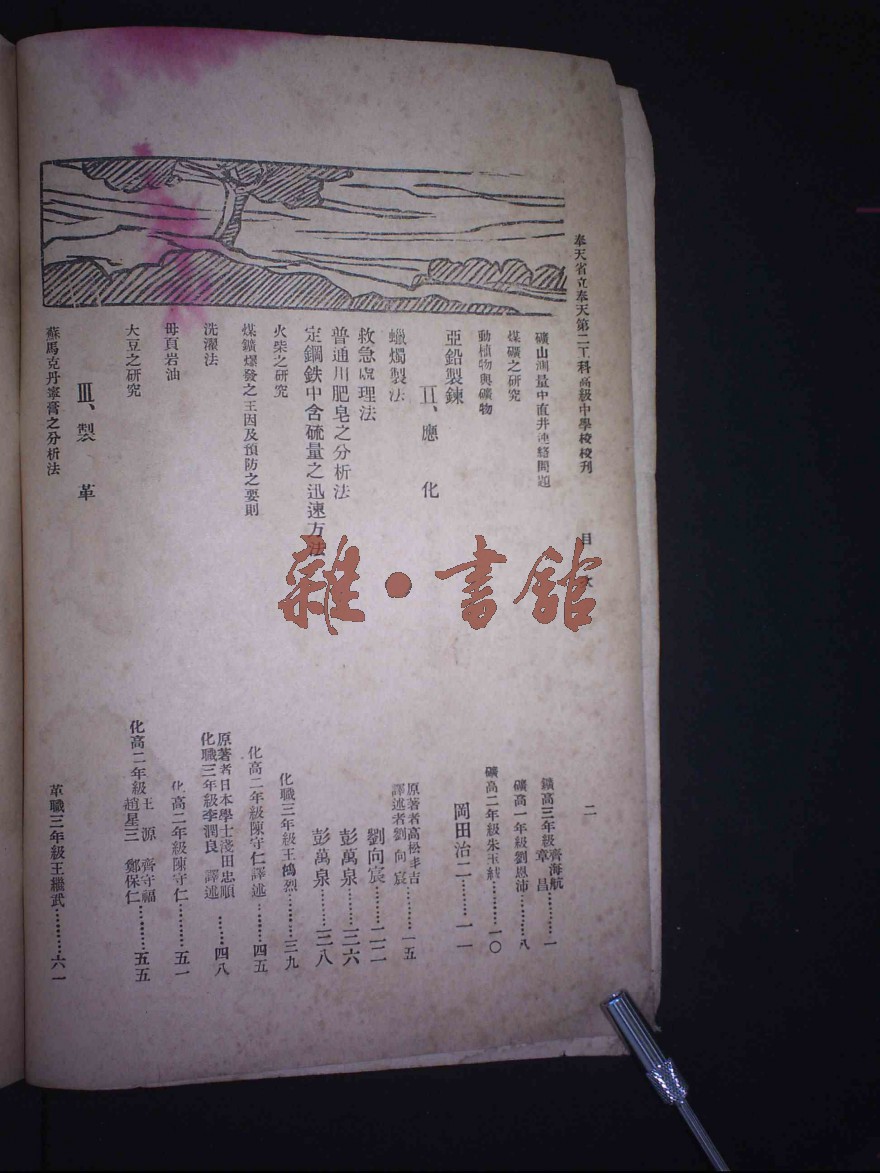 奉天省立奉天第二工科高級中學校校刊 目次 二
礦山測量中直井連絡問題 鑛高三年級齊海航 章昌………一
煤礦之研究 礦高一年級劉恩沛………八
動植物與礦物 礦高二年級朱玉………一〇
亞鉛製鍊 岡田治二………一一
II、應化
蠟燭製法 原著者高松 吉 譯述者劉向宸………一五
救急處理法 劉向宸………二二
普通用肥皂之分析法 彭萬泉………三六
定鋼鉄中含硫量之迅速方法 彭萬泉………三八
火柴之研究 化職三年級王鴻烈………三九
煤鑛爆發之主因及預防之要則 化高二年級陳守仁譯述………四五
洗濯法 原著者日本學士淺田忠順 化職三年級李潤良 譯述………四八
母頁岩油 化高二年級陳守仁………五一
大豆之研究 化高二年級王源 齊守福 趙星三 鄭保仁………五五
III、製革
蘇馬克丹寧膏之分析法 革職三年級王繼武………六一
雜·書館